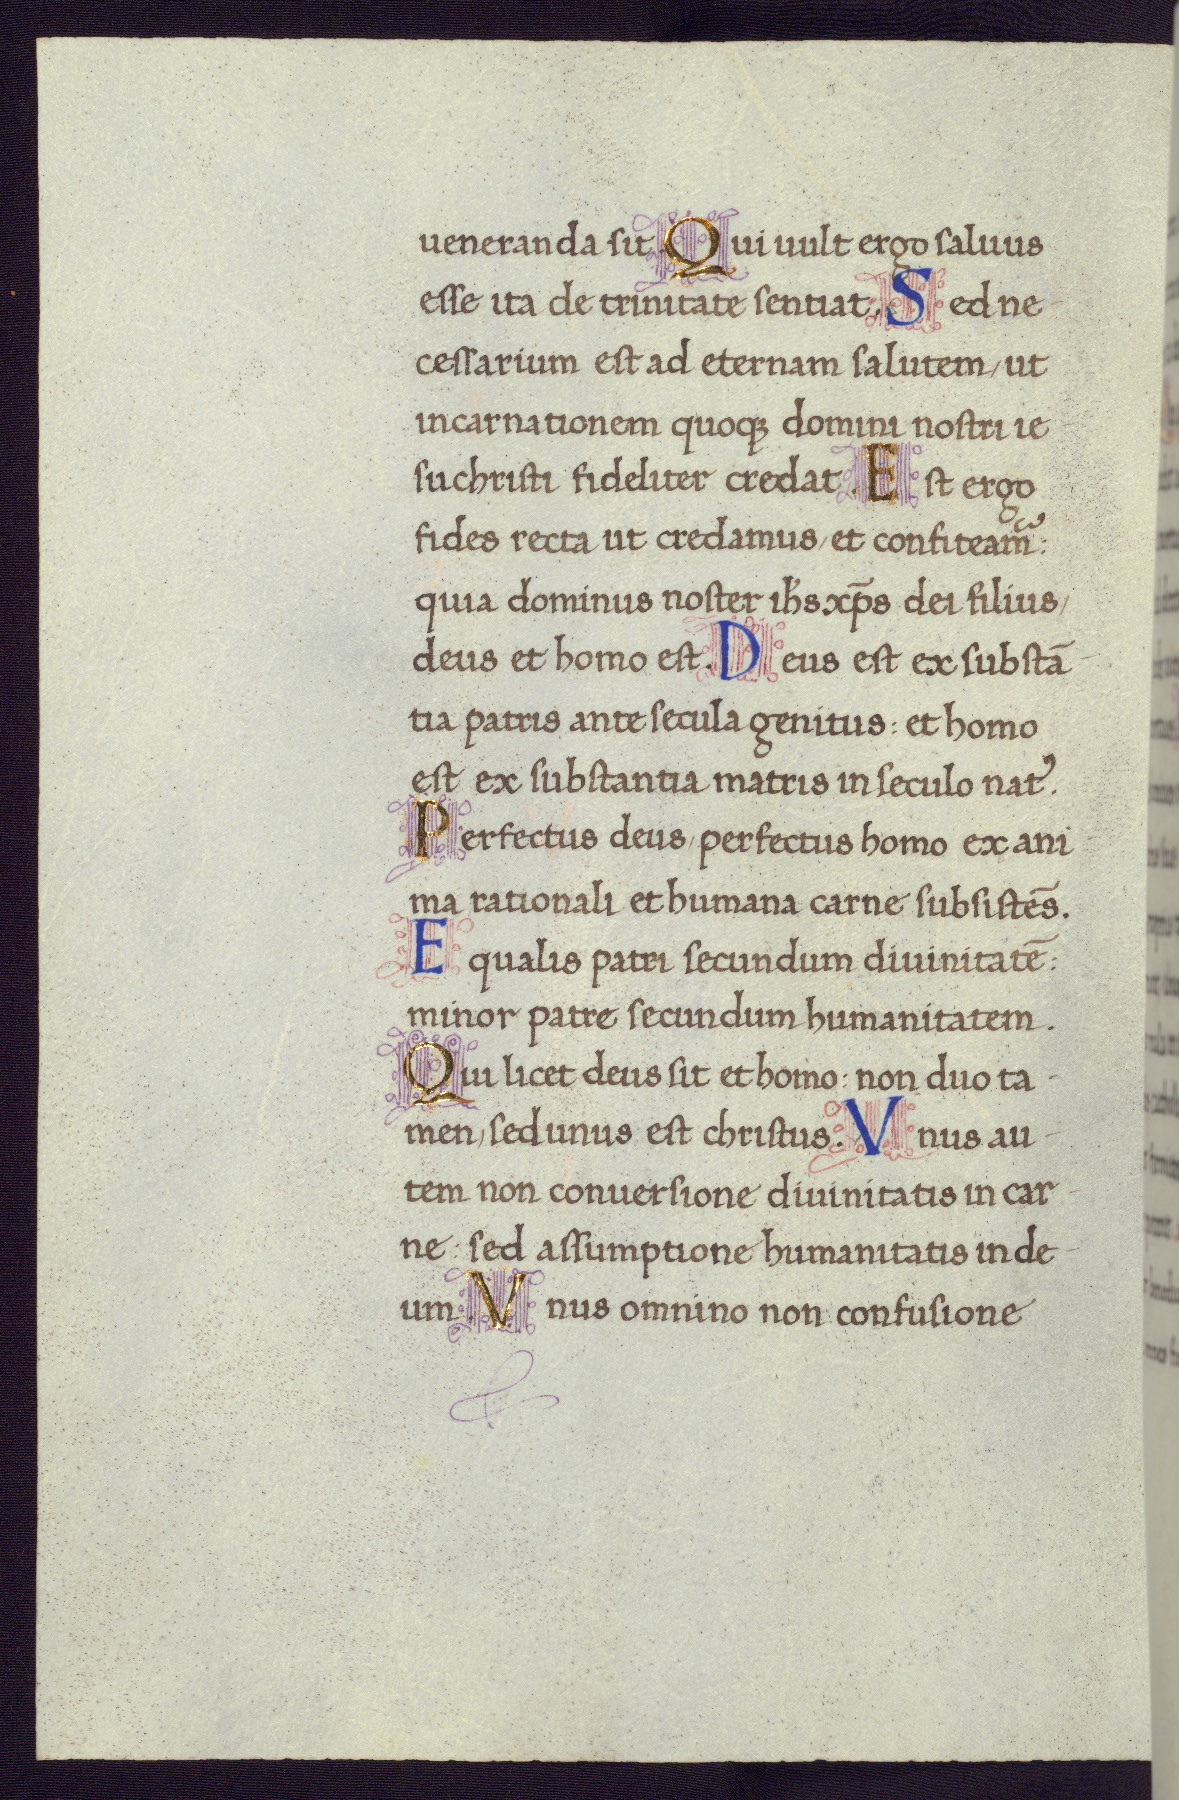 ueneranda sit. Qui uult ergo saluus
esse ita de trinitate sentiat. Sed ne
cessarium est ad eternam salutem, ut
incarnationem quoqꝫ domini nostri ie
su christi fideliter credat. Est ergo
fides recta ut credamus, et confiteam᷑:
quia dominus noster ihs xp̄s dei filius,
deus et homo est. Deus est ex substā
tia patris ante secula genitus: et homo
est ex substantia matris in seculo natꝰ.
Perfectus deus, perfectus homo ex ani
ma rationali et humana carne subsistēs.
Equalis patri secundum diuinitatē:
minor patre secundum humanitatem.
Qui licet deus sit et homo: non duo ta-
men, sed unus est christus. Vnus au-
tem non conuersione diuinitatis in car-
ne: sed assumptione humanitatis in de-
um. Vnus omnino non confusione